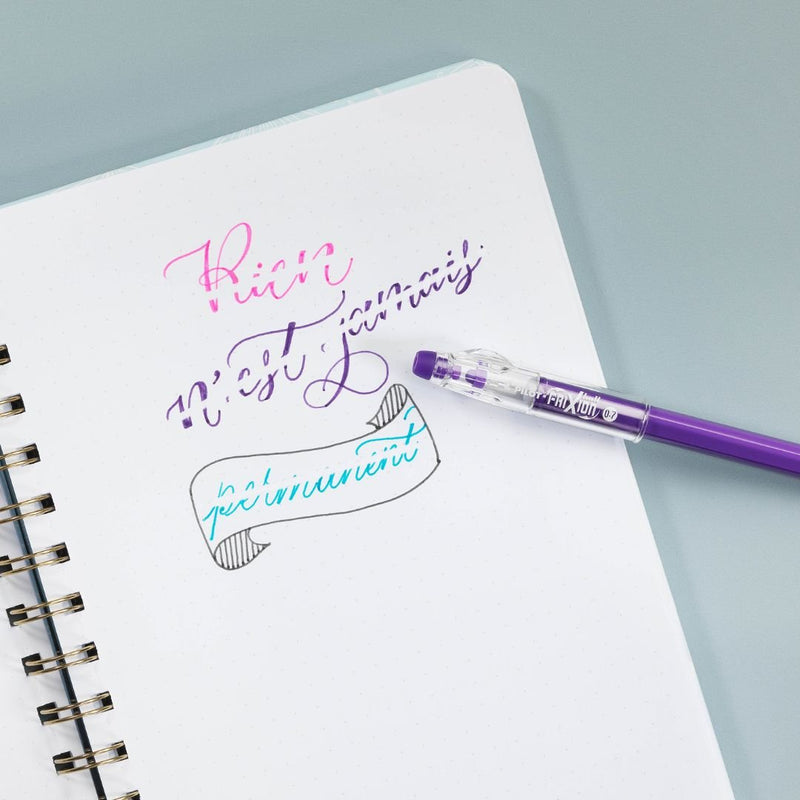 Rien
n'est jamais
permanent
PILOT FRIXION ball 0.7